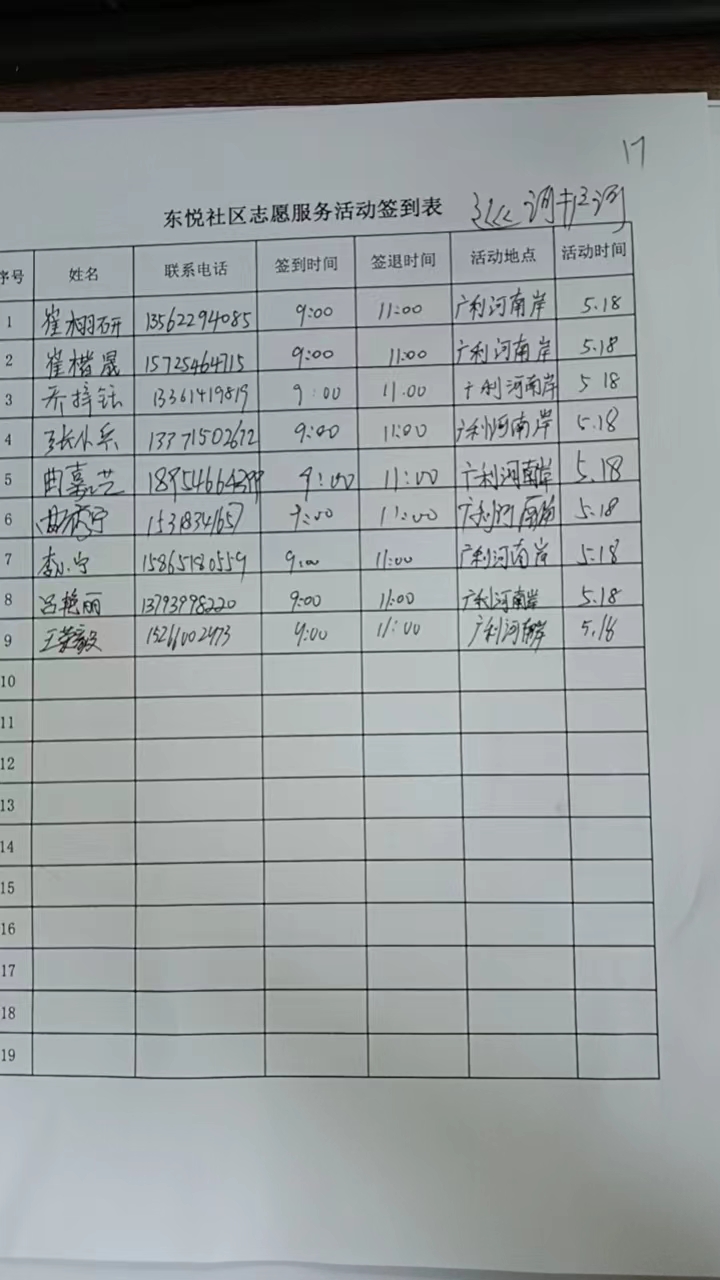 17
东悦社区志愿服务活动签到表 巡河护河
序号 姓名 联系电话 签到时间 签退时间 活动地点 活动时间
1 崔栩研 13562294085 9:00 11:00 广利河南岸 5.18
2 崔楷晟 15725464715 9:00 11:00 广利河南岸 5.18
3 乔梓钰 13361419819 9:00 11.00 广利河南岸 5 18
4 张小兵 13371502672 9:00 11:00 广利河南岸 5.18
5 曲嘉艺 9:00 11:00 广利河南岸 5.18
6 15318341657 9:00 11:00 广利河南岸 5.18
7 李小宁 15865180559 9:00 11:00 广利河南岸 5.18
8 吕艳丽 13793998220 9:00 11:00 广利河南岸 5.18
9 王荣毅 15266002473 9:00 11:00 广利河南岸 5.18
10
11
12
13
14
15
16
17
18
19